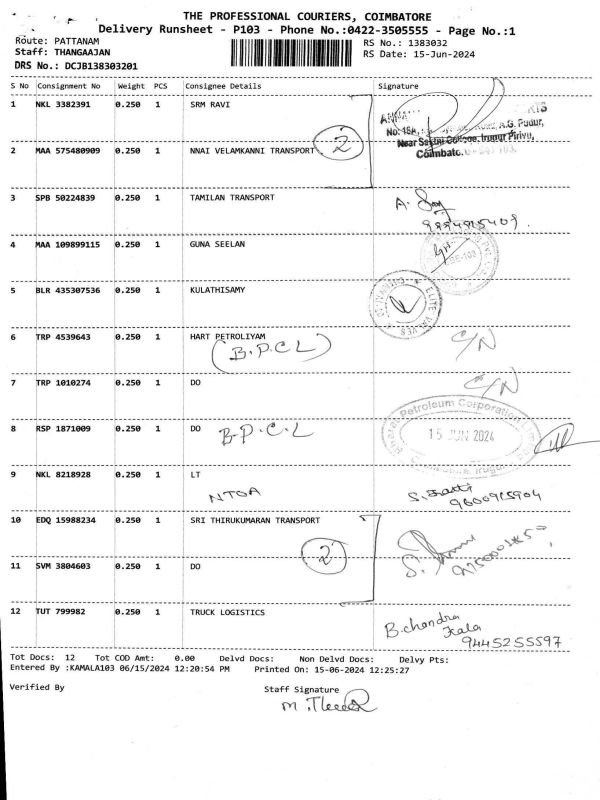 THE PROFESSIONAL COURIERS, COIMBATORE
Delivery Runsheet - P103 - Phone No.:0422-3505555 - Page No.:1
Route: PATTANAM RS No.: 1383032
Staff: THANGAAJAN RS Date: 15-Jun-2024
DRS No.: DCJB138303201
S No Consignment No Weight PCS Consignee Details Signature
1 NKL 3382391 0.250 1 SRM RAVI
A.G. Pudur,
2 MAA 575480909 0.250 1 NNAI VELAMKANNI TRANSPORT 2
Coimbato
3 SPB 50224839 0.250 1 TAMILAN TRANSPORT
4 MAA 109899115 0.250 1 GUNA SEELAN
5 BLR 435307536 0.250 1 KULATHISAMY
ELITE VALVES
6 TRP 4539643 0.250 1 HART PETROLIYAM C/N
(B.P.C.L)
7 TRP 1010274 0.250 1 DO C/N
8 RSP 1871009 0.250 1 DO B.P.C.L
Bharat Petroleum Corporation Limited
15 JUN 2024
9 NKL 8218928 0.250 1 LT
NTOA
9600915904
10 EDQ 15988234 0.250 1 SRI THIRUKUMARAN TRANSPORT
2
11 SVM 3804603 0.250 1 DO
12 TUT 799982 0.250 1 TRUCK LOGISTICS
B.chandra
kala
9445255597
Tot Docs: 12 Tot COD Amt: 0.00 Delvd Docs: Non Delvd Docs: Delvy Pts:
Entered By :KAMALA103 06/15/2024 12:20:54 PM Printed On: 15-06-2024 12:25:27
Verified By Staff Signature